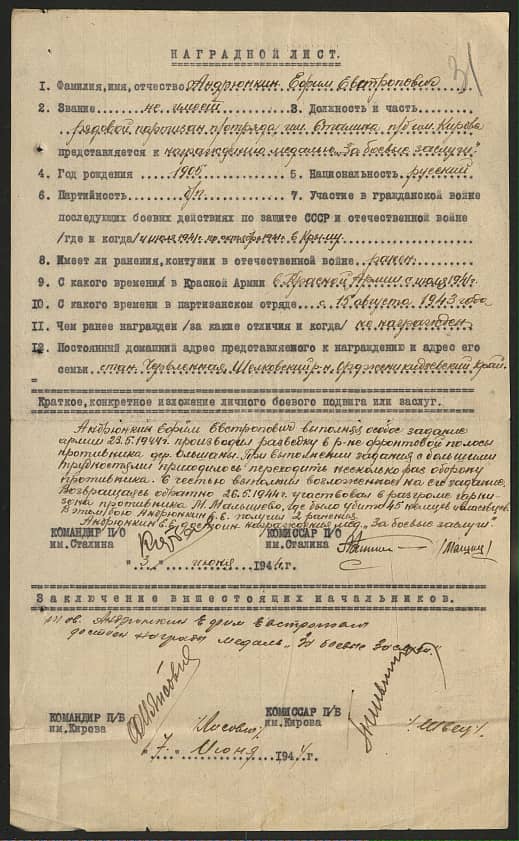 31
НАГРАДНОЙ ЛИСТ.
1. Фамилия,имя,отчество Андрюнкин Ефим Евстропович
2. Звание не имеет 3. Должность и часть
рядовой партизан п/отряда им. Сталина п/б им. Кирова
представляется к награждению медалью "За боевые заслуги".
4. Год рождения 1905 5. Национальность русский
6. Партийность б/п 7. Участие в гражданской войне
последующих боевых действиях по защите СССР и отечественной войне
/где и когда/ с июля 1941г. по октябрь 1941г. в Крыму.
8. Имеет ли ранения, контузии в отечественной войне ранен
9. С какого времени в Красной Армии в Красной Армии с июля 1941г.
10. С какого времени в партизанском отряде с 15 августа 1943 года
11. Чем ранее награжден /за какие отличия и когда/ не награжден
12. Постоянный домашний адрес представляемого к награждению и адрес его
семьи стан. Червленная Шелковский р-н Орджоникидзевский край.
Краткое,конкретное изложение личного боевого подвига или заслуг.
Андрюнкин Ефим Евстропович выполняя особое задание
армии 23.5.1944г. производил разведку в р-не фронтовой полосы
противника дер. Ольшаны. При выполнении задания с большими
трудностями приходилось переходить несколько раз оборону
противника. С честью выполнил возложенное на его задание.
Возвращаясь обратно 26.5.1944г. участвовал в разгроме гарни-
зона противника М. Малышево, где было убито 45 немцев
В этом бою Андрюнкин Е.Е. получил 2 ранения.
Андрюнкин Е.Е. достоин награждения мед. "За боевые заслуги"
КОМАНДИР П/О КОМИССАР П/О
им.Сталина им.Сталина
"3" июня 1944г.
Заключение вышестоящих начальников.
Тов. Андрюнкин Ефим Евстропович
достоин награды медаль "За боевые заслуги".
КОМАНДИР П/Б КОМИССАР П/Б
им.Кирова им.Кирова /Швец/.
"7" Июня 1944г.